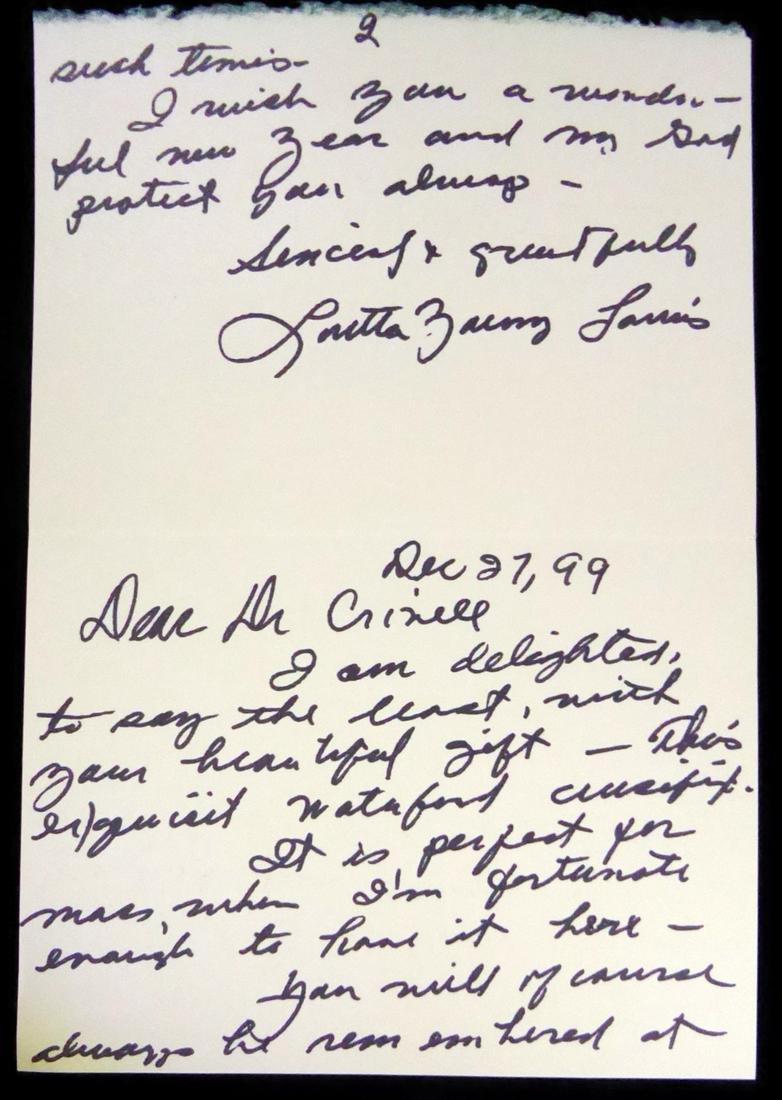 2
such times-
I wish you a wonder-
ful new year and may God
protect you always -
Sincerely & gratefully
Loretta Young Louis
Dec 27, 99
Dear Dr Crinell
I am delighted,
to say the least, with
your beautiful gift - This
exquisit Waterford crusifix.
It is perfect for
mass, when I'm fortunate
enough to have it here -
You will of course
always be remembered at